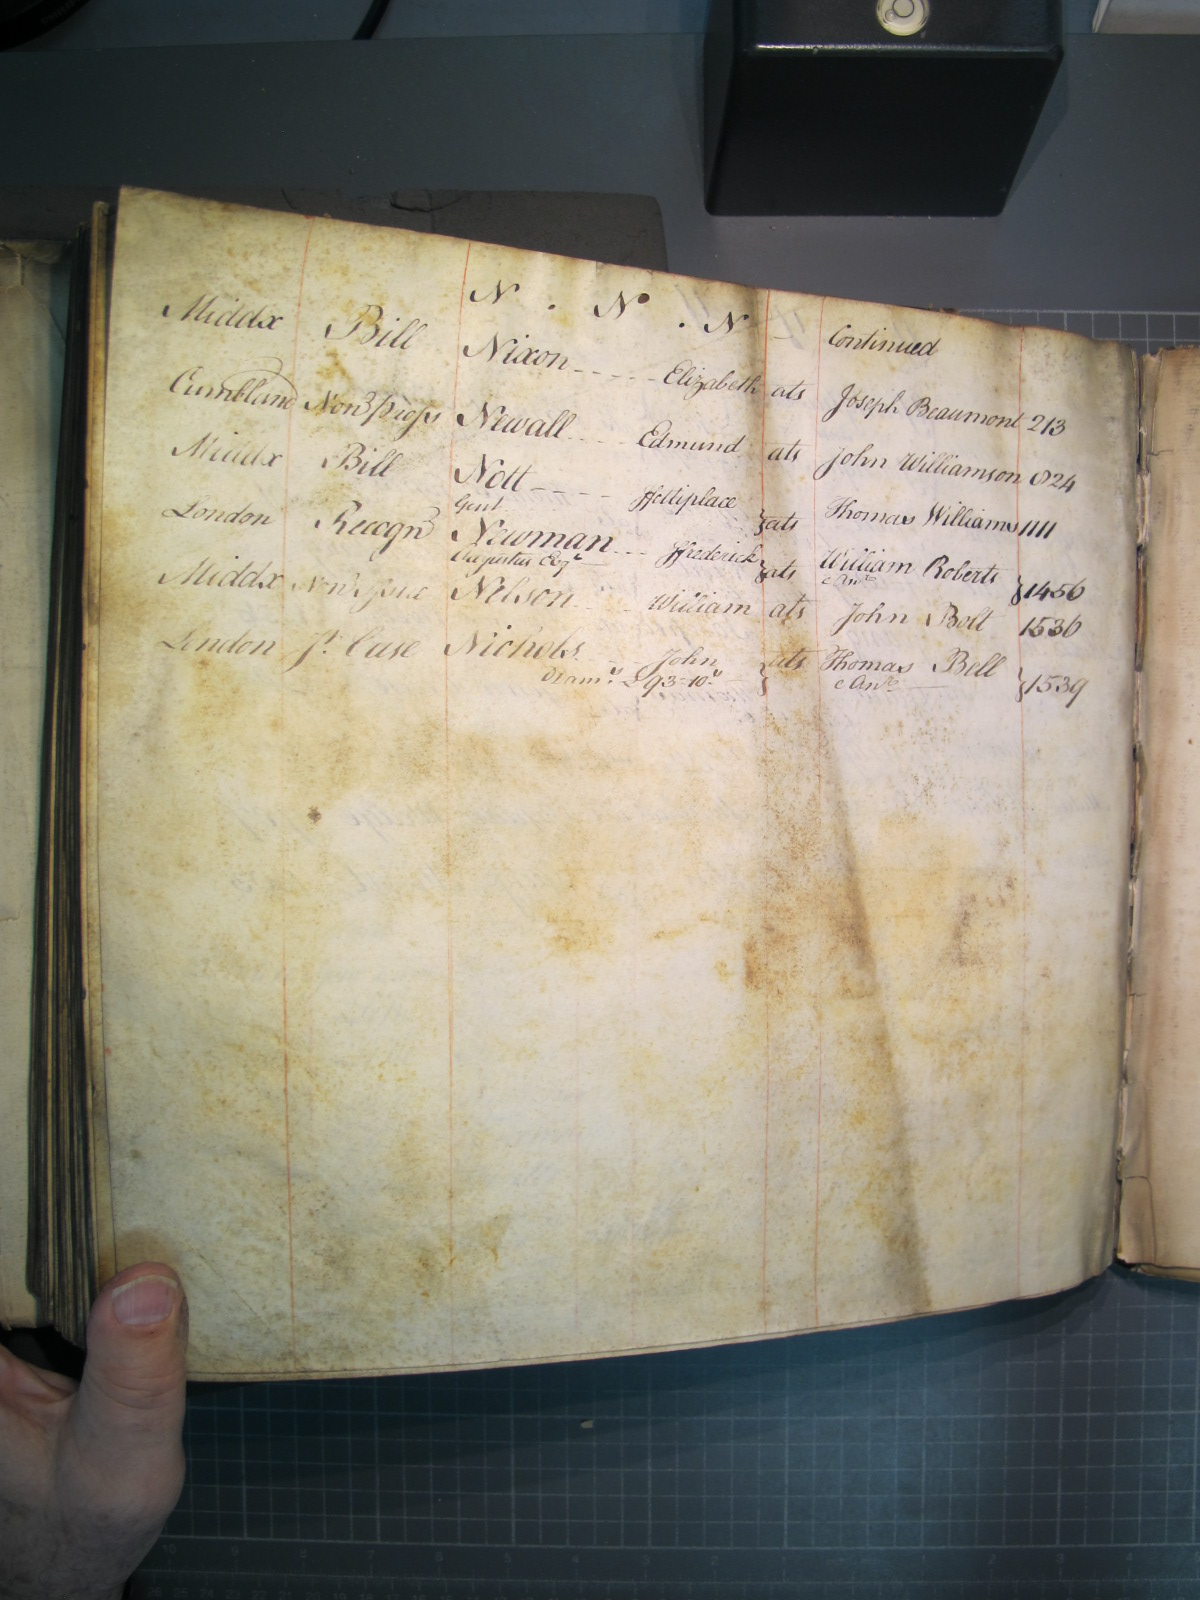 N . N . N Continued
Middx Bill Nixon Elizabeth ats Joseph Beaumont 213
Cumbland Non Pros Newall Edmund ats John Williamson 824
Middx Bill Nott ffettiplace ats Thomas Williams 1111
Gent
London Recogn Newman ffrederick ats William Roberts 1456
Augustus Esqr & Anr
Middx Nelson William ats John Bolt 1536
London Case Nichols John ats Thomas Bell 1539
Dam £93-10s & Anr